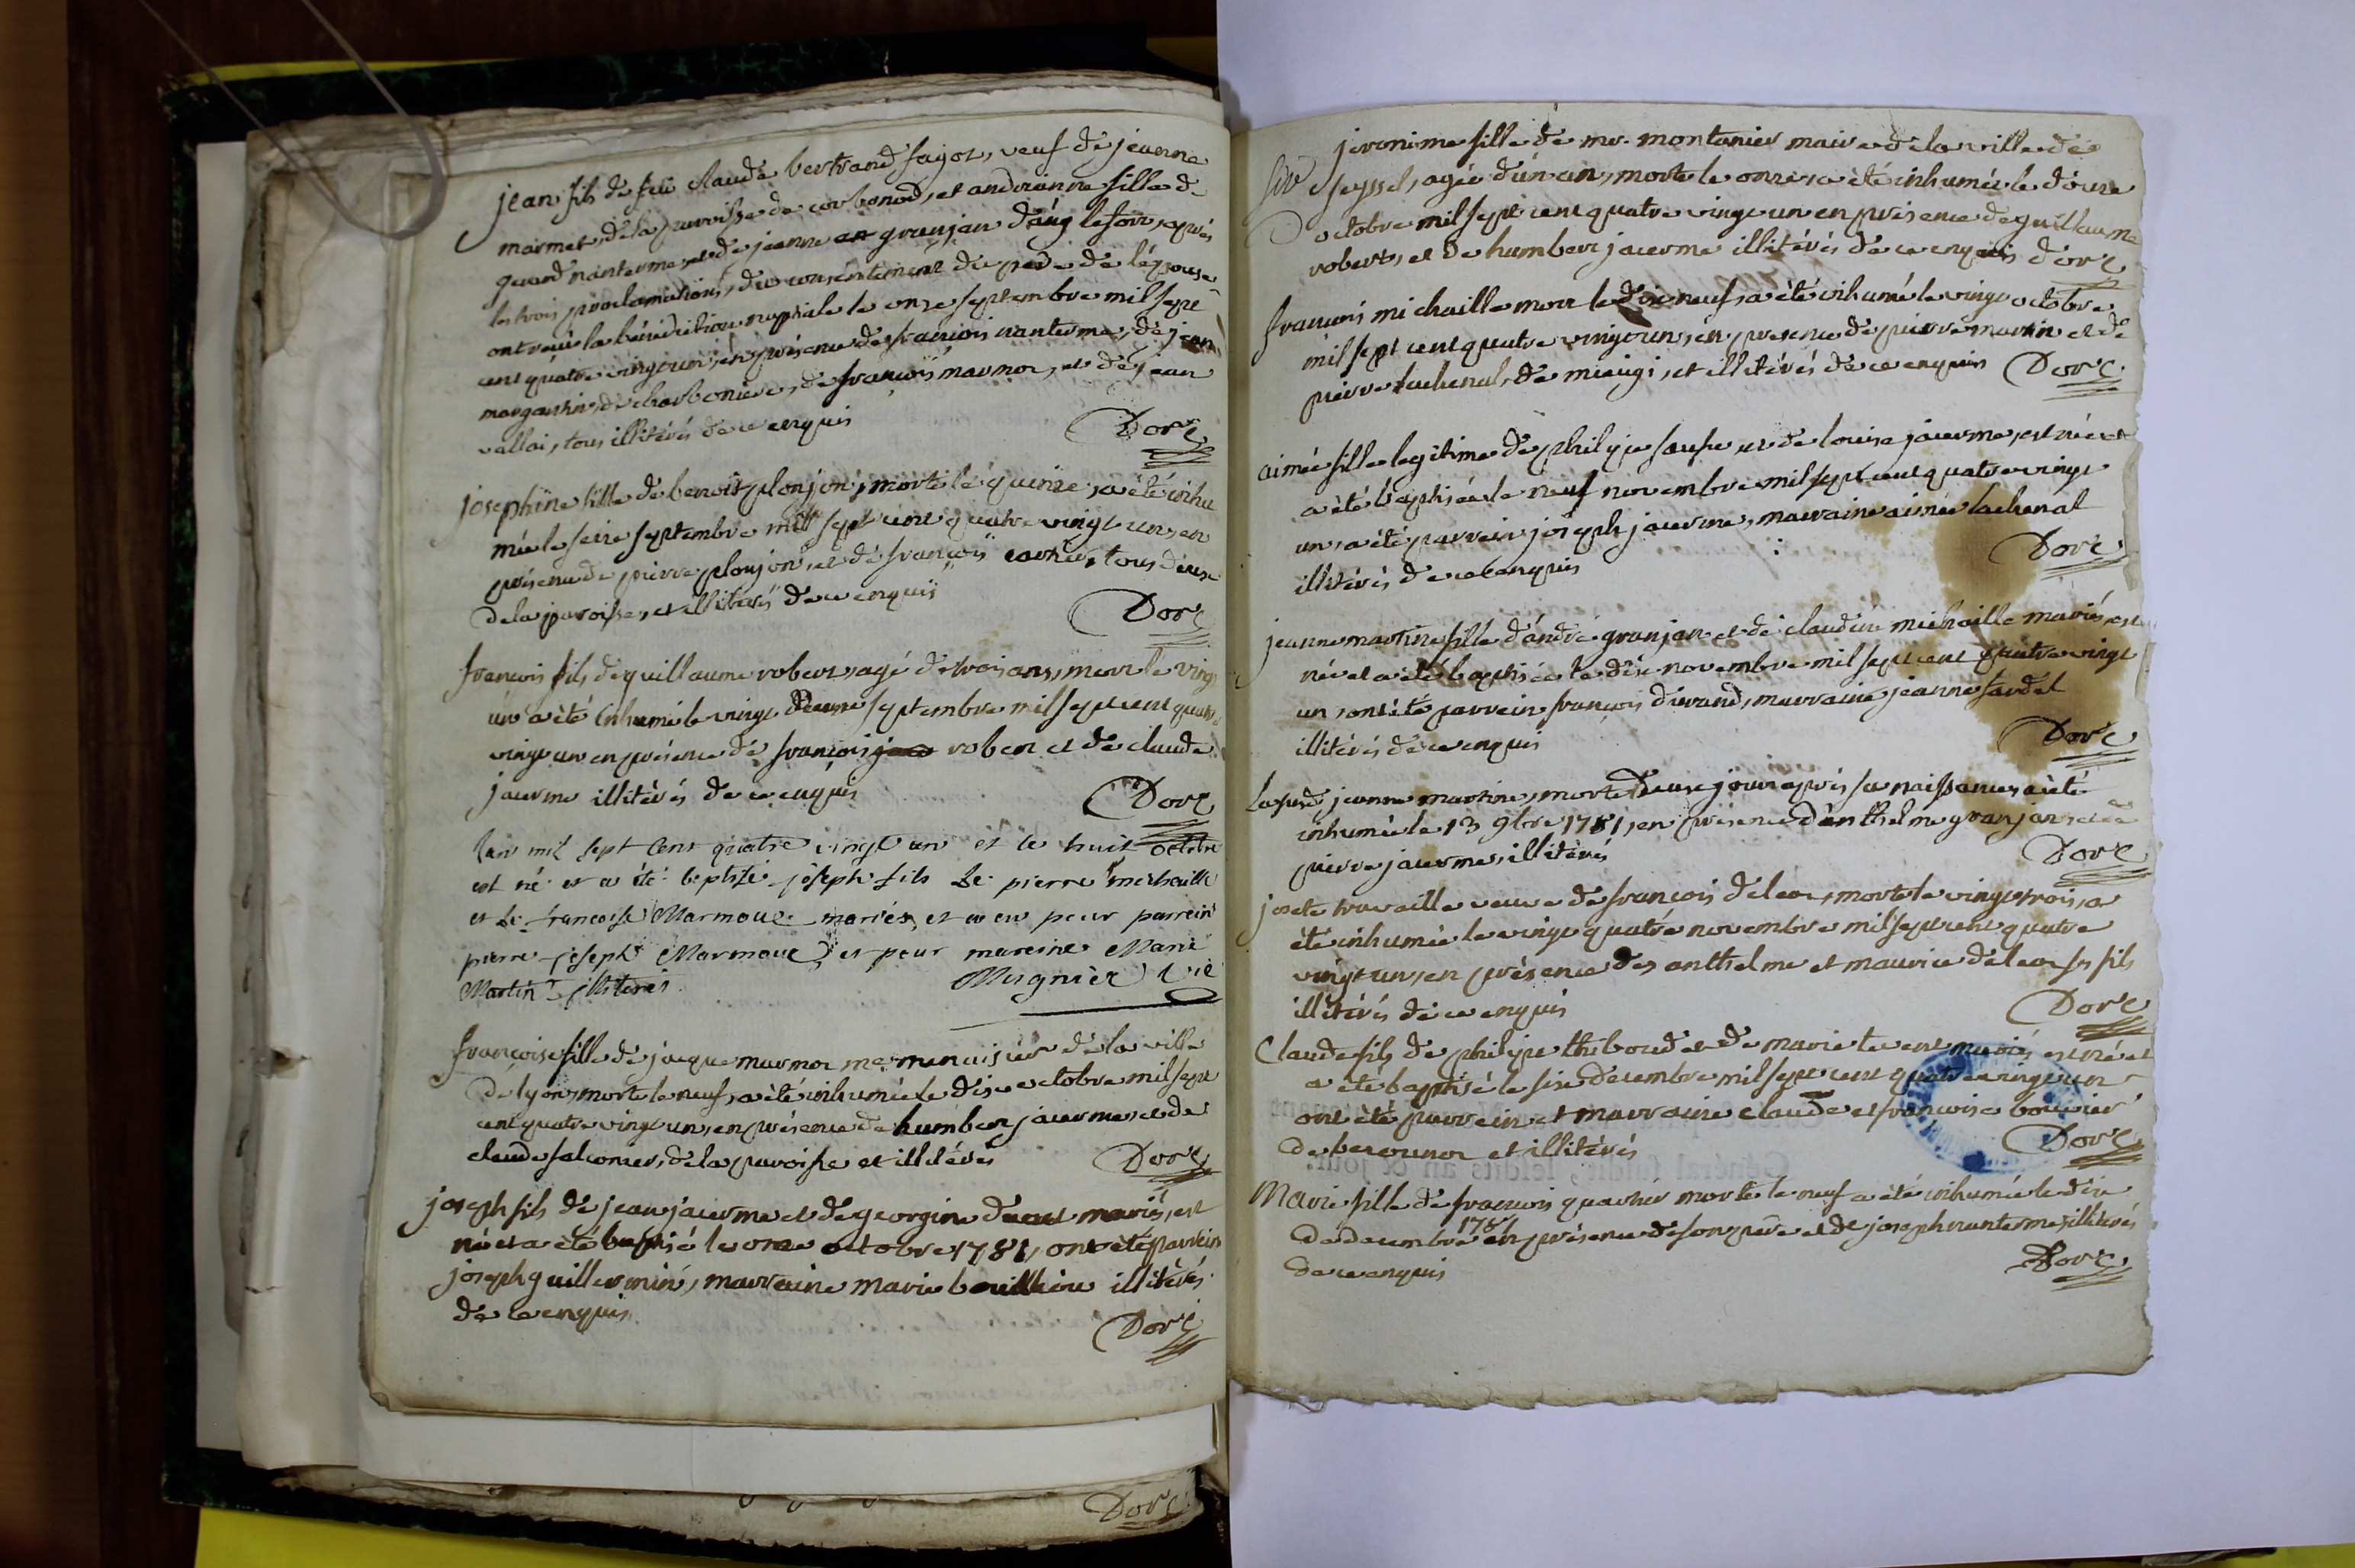 jean fils de feu claude bertrand fagot, veuf de jeanne
marmet, de la parroisse de corbonod, et andrianne fille de
feu nanterme, et de jeanne granjan le soir, après
les trois proclamations, du consentement du père de l'épouse
ont reçu la bénédiction nuptiale le onze septembre mil sept
cent quatre vingt un, en présence de françois nanterme, de jean
de charboniere, de françois marmot, et de jean
vallai, tous illitérés de ce enquis
Dore
josephine fille de benoit plonjon, morte le quinze, a été inhu
mée le seize septembre mill sept cent quatre vingt un, en
présence de pierre plonjon, et de françois carrier, tous deux
de la paroisse, et illiterés de ce enquis
Dore
françois fils de guillaume robert, agé de trois ans, mort le vingt
un a été inhumé le vingt deux septembre mil sept cent quatre
vingt un en présence de françois robert et de claude
jacerme illitérés de ce enquis
Dore
lan mil sept cent quatre vingt un et le huit octobre
est né et a été baptizé joseph fils de pierre michaille
et de francoise Marmoux mariés, et a eu pour parrein
pierre joseph Marmoux et pour mareine Marie
Martin illiterés
Mugnier vic
françoise fille de jacque marmot me menuisier de la ville
de lyon, morte le neuf, a été inhumée le dix octobre mil sept
cent quatre vingt un, en présence de humbert jacerme, et de
claude falconier, de la paroisse et illitérés
Dore
joseph fils de jean jacerme et de georgine mariés, est
né et a été baptisé le onze octobre 1781, ont été parrein
joseph guillermin, marraine marie illitérés
de ce enquis
Dore
Dore
jeronime fille de mr. montanier maire de la ville de
seyssel, agée d'un an, morte le onze, a été inhumée le douze
octobre mil sept cent quatre vingt un en présence de guillaume
robert, et de humbert jacerme illitérés de ce enquis dore
françois michaille mort le dix neuf, a été inhumé le vingt octobre
mil sept cent quatre vingt un, en presence de pierre martin et de
pierre lachenal, de mieugi, et illitérés de ce enquis Dore
aimée fille legitime de philipe et de louise jacerme, est née et
a été baptisée le neuf novembre mil sept cent quatre vingt
un, a été parrein joseph jacerme, marraine aimée lachenal
illitérés de ce enquis
Dore
jeanne martine fille d'andré granjan et de claudine michaille mariés, est
née et a été baptisée le dix novembre mil sept cent quatre vingt
un, ont été parrein françois durand, marraine jeanne tardel
illitérés de ce enquis
Dore
la susd. jeanne martine, morte deux jours après sa naissance, a été
inhumée le 13 9bre 1781, en présence d'anthelme granjan, et de
pierre jacerme, illitérés
Dore
josete travaille veuve de françois deleor, morte le vingt trois, a
été inhumée le vingt quatre novembre mil sept cent quatre
vingt un, en présence des anthelme et maurice deleor ses fils
illitérés de ce enquis
Dore
Claude fils de philipe thiboud et de marie mariés est né et
a été baptisé le six decembre mil sept cent quatre vingt un
ont été parrein et marraine claude et françoise bouvier
de et illitérés
Dore
Général susdit, lesdits an & jour.
Marie fille de françois quarhier morte le neuf a été inhumée le dix
de decembre 1781 en présence de son père et de joseph nanterme illitérés
de ce enquis
Dore